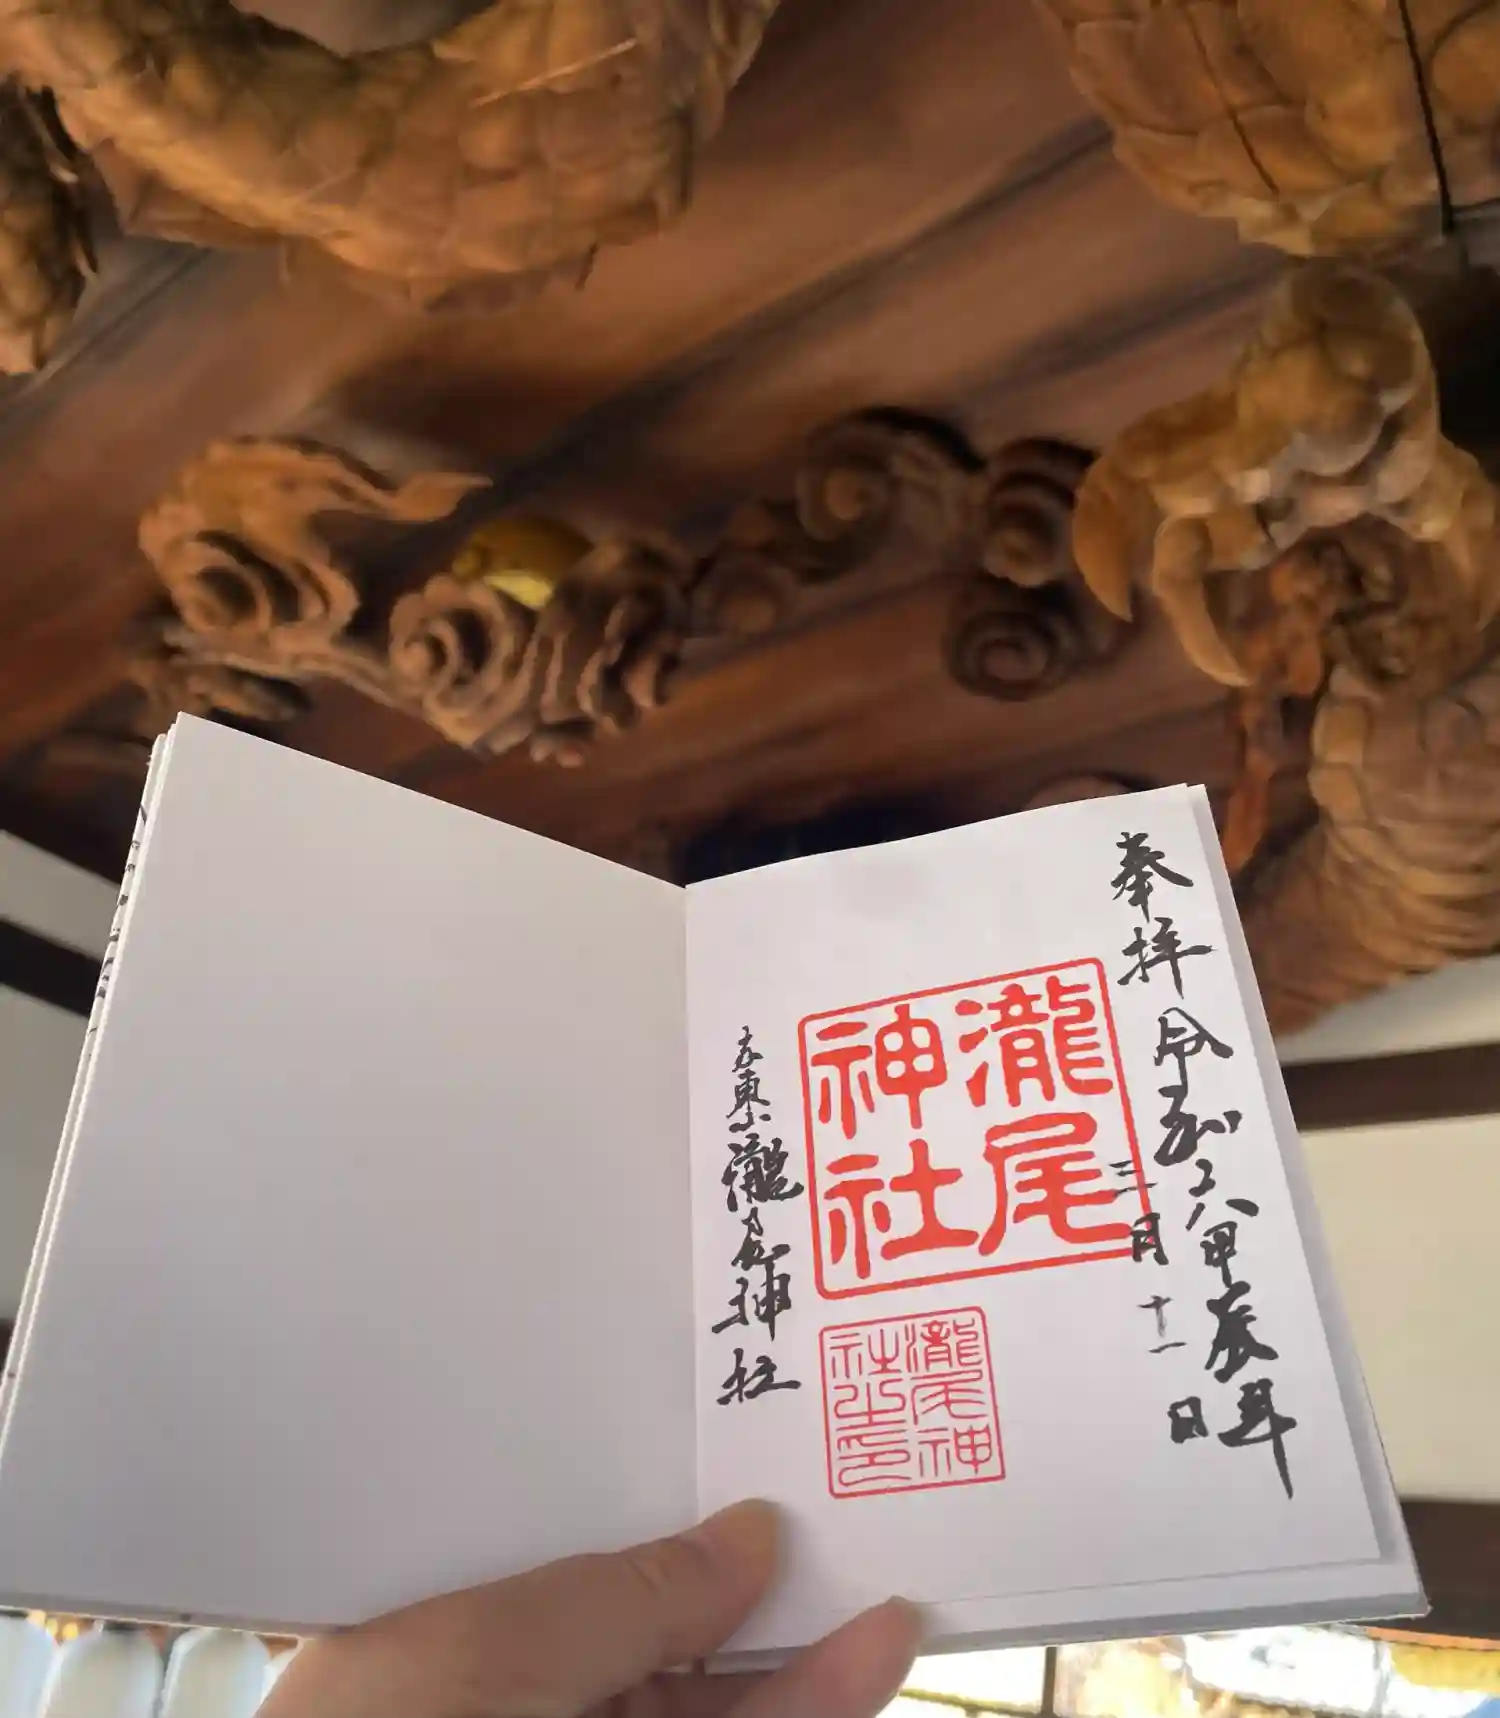 奉拝
令和六甲辰年
三月十一日
瀧尾
神社
瀧尾神
社之印
京東山瀧尾神社